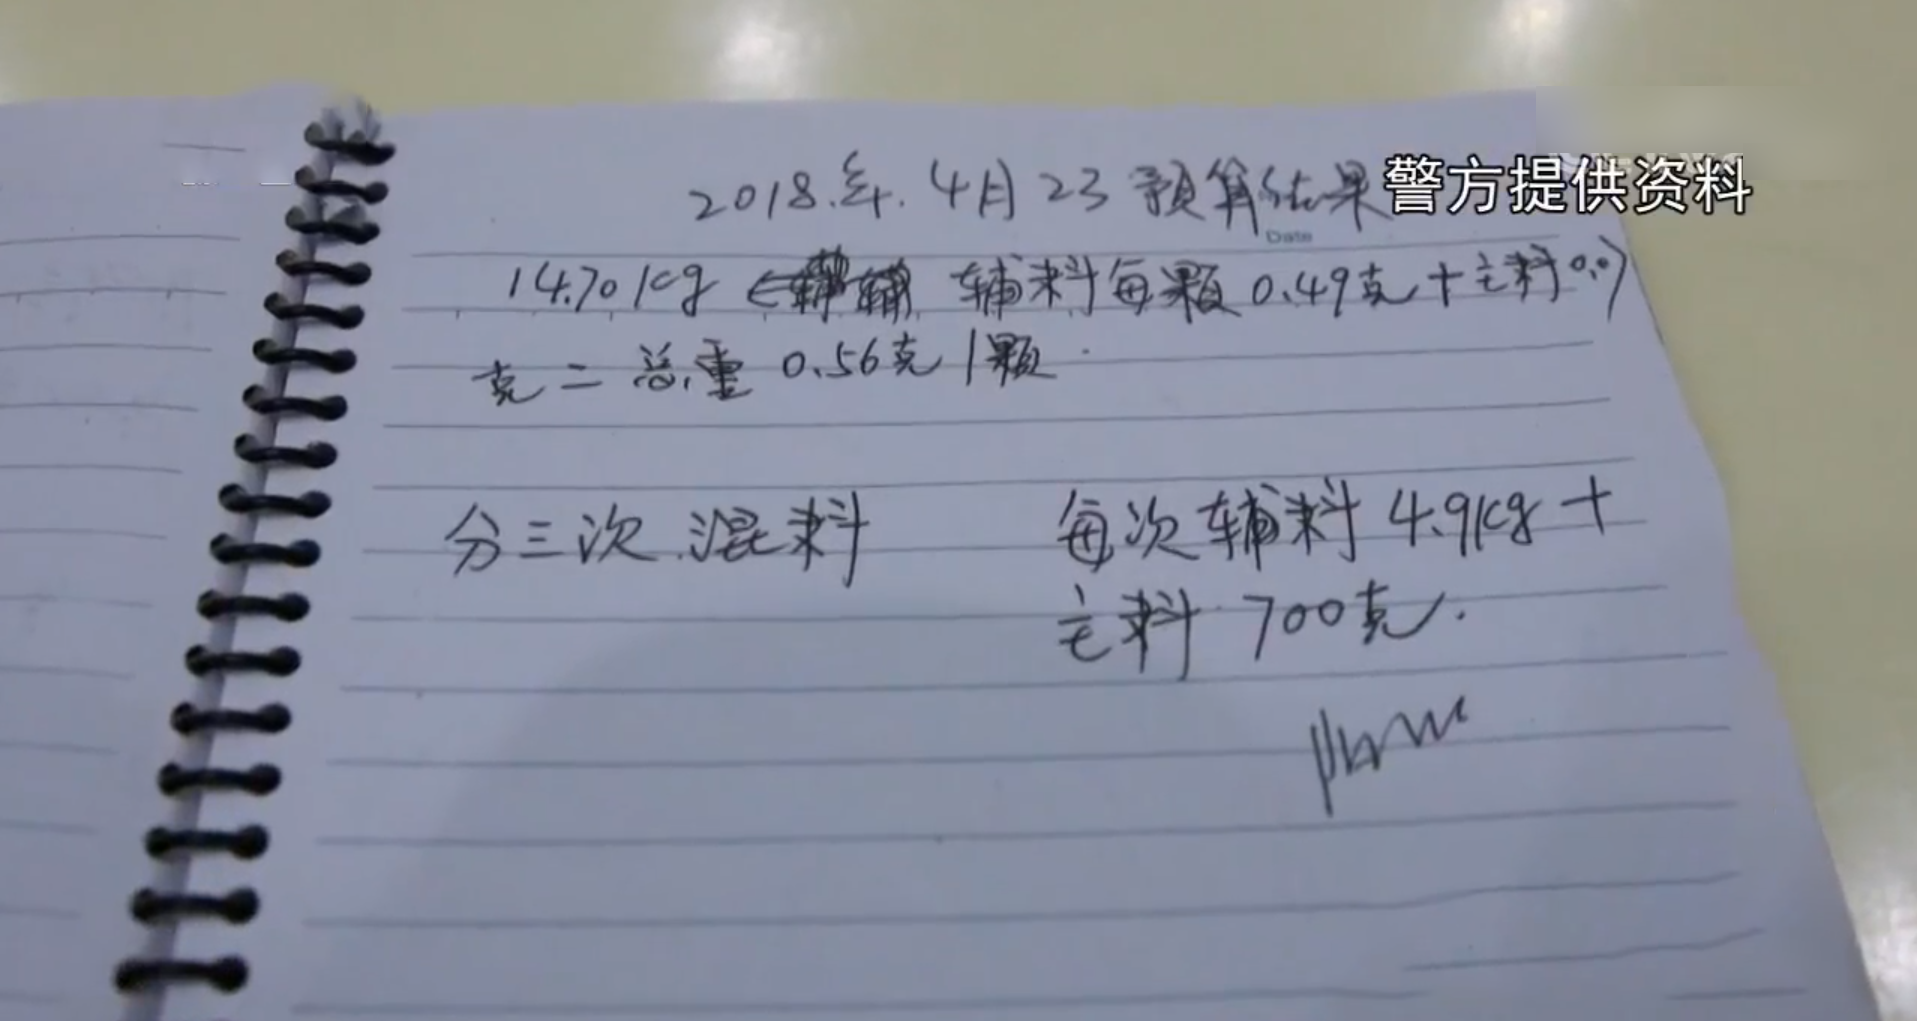 2018.年.4月23预算结果
警方提供资料
Date
14.701kg 辅料每颗0.49克+主料0.07
克=总重0.56克/颗.
分三次.混料
每次辅料4.9kg+
主料700克.